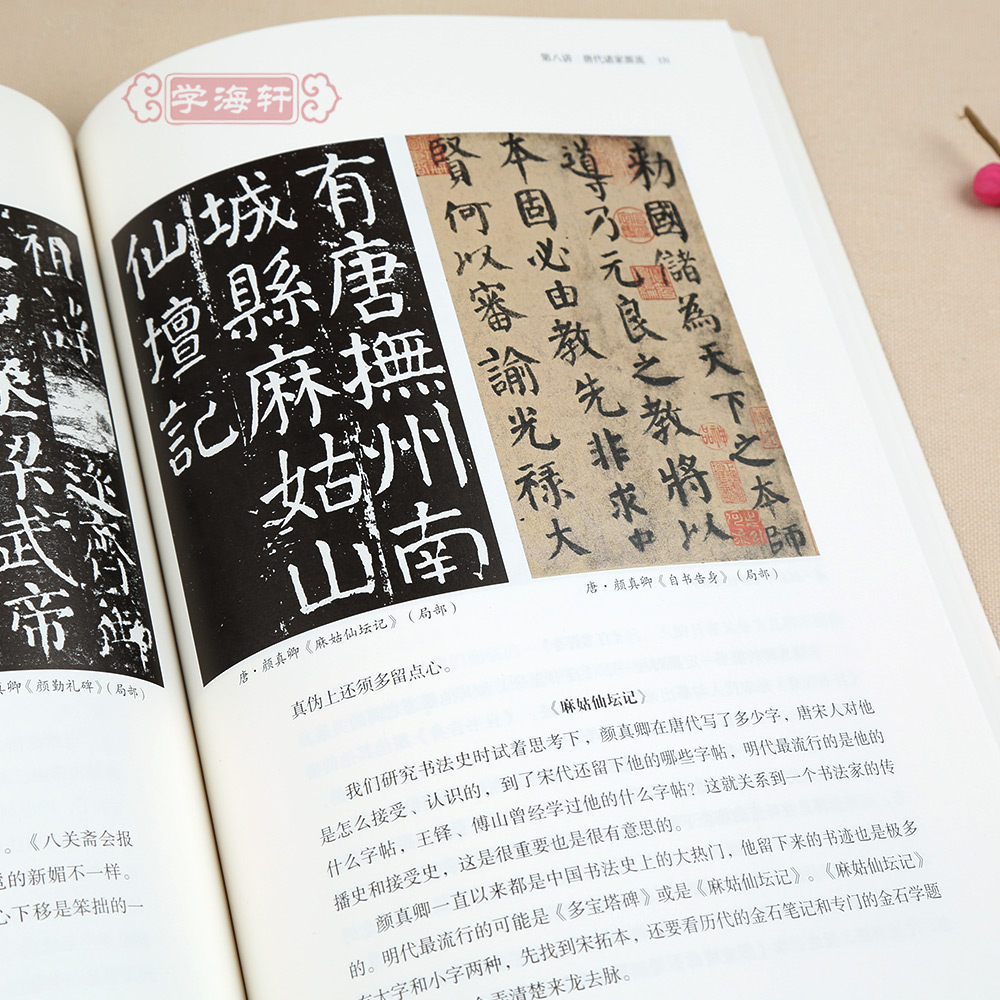 梁武帝
真卿《颜勤礼碑》(局部)
。《八关斋会报
的新媚不一样。
心下移是笨拙的一
第八讲 唐代诸家源流
学海轩
有唐撫州南
城縣麻姑山
仙壇記
勅國儲為天下之本師
導乃元良之教將以
本固必由教先非求中
賢何以審諭光祿大
唐·颜真卿《麻姑仙坛记》(局部)
唐·颜真卿《自书告身》(局部)
真伪上还须多留点心。
《麻姑仙坛记》
我们研究书法史时试着思考下，颜真卿在唐代写了多少字，唐宋人对他
是怎么接受、认识的，到了宋代还留下他的哪些字帖，明代最流行的是他的
什么字帖，王铎、傅山曾经学过他的什么字帖？这就关系到一个书法家的传
播史和接受史，这是很重要也是很有意思的。
颜真卿一直以来都是中国书法史上的大热门，他留下来的书迹也是极多
的。明代最流行的可能是《多宝塔碑》或是《麻姑仙坛记》。《麻姑仙坛记》
有大字和小字两种，先找到宋拓本，还要看历代的金石笔记和专门的金石学题
弄清楚来龙去脉。